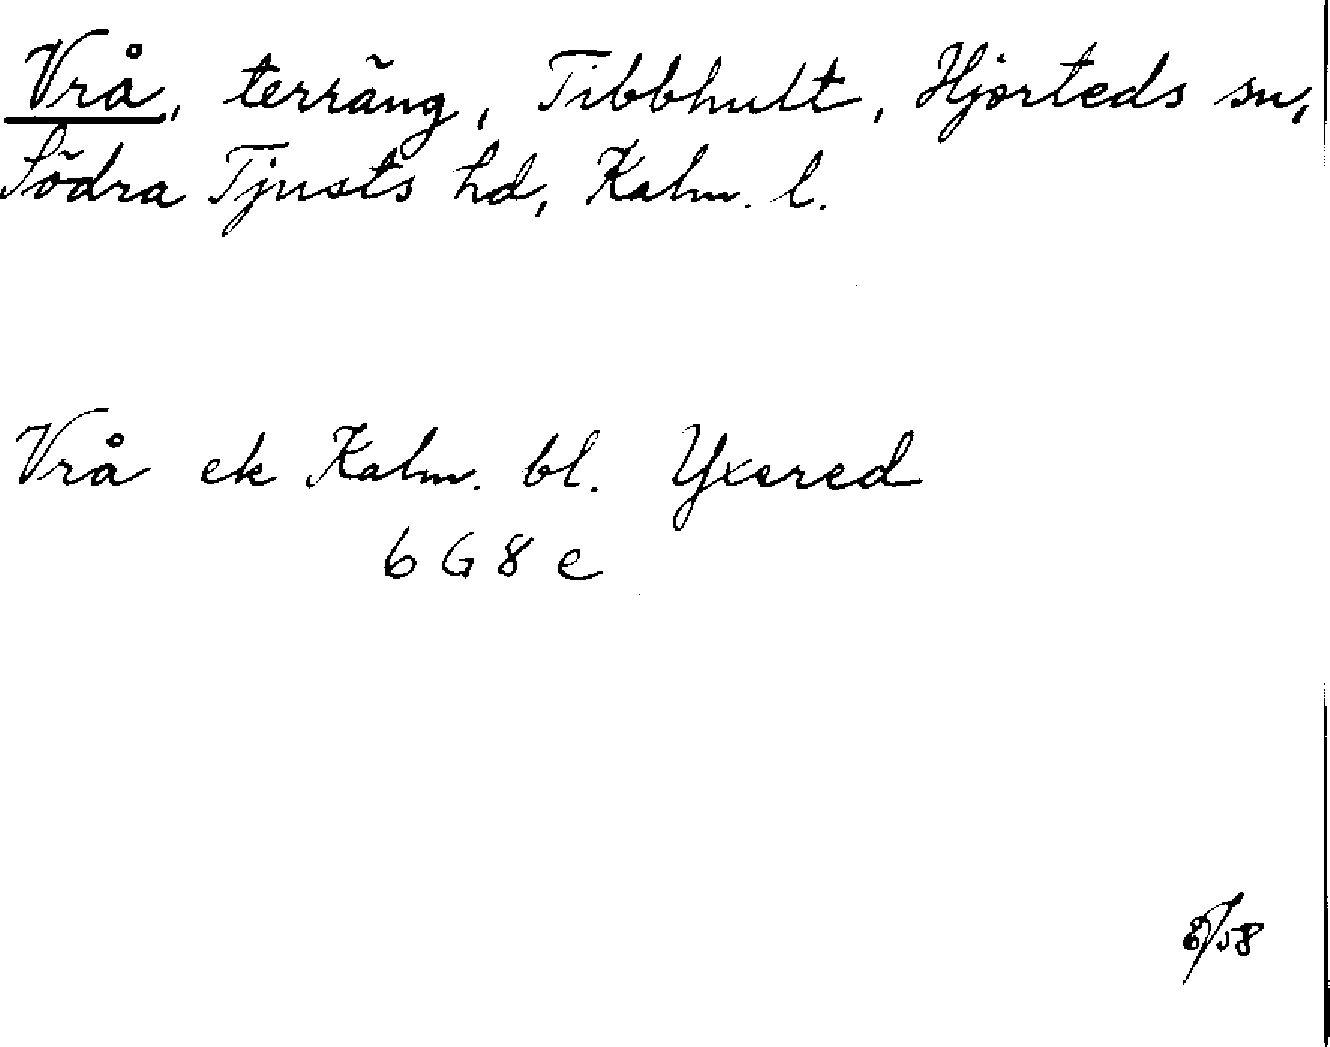 Vrå, terräng, Tibbhult, Hjorteds sn,
Södra Tjusts hd, Kalm. l.
Vrå ek Kalm. bl. Yxered
6 G 8 e